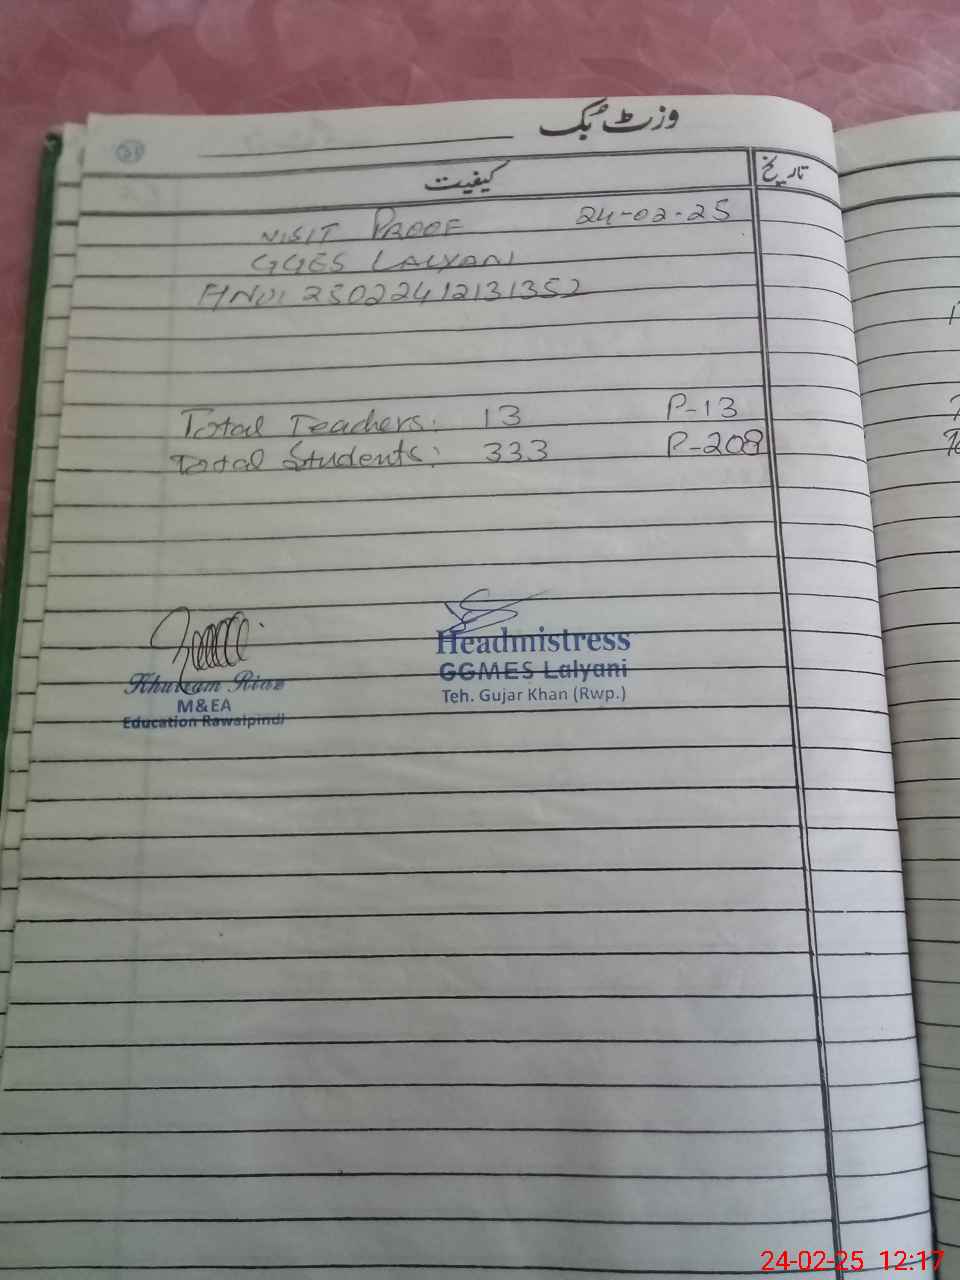 وزٹ بک
کیفیت تاریخ
VISIT PROOF 24-02-25
GGES LALYANI
25022412131352
Total Teachers: 13 P-13
Total Students: 333 P-208
Khurram Riaz
M&EA
Education Rawalpindi
Headmistress
GGMES Lalyani
Teh. Gujar Khan (Rwp.)
24-02-25 12:17